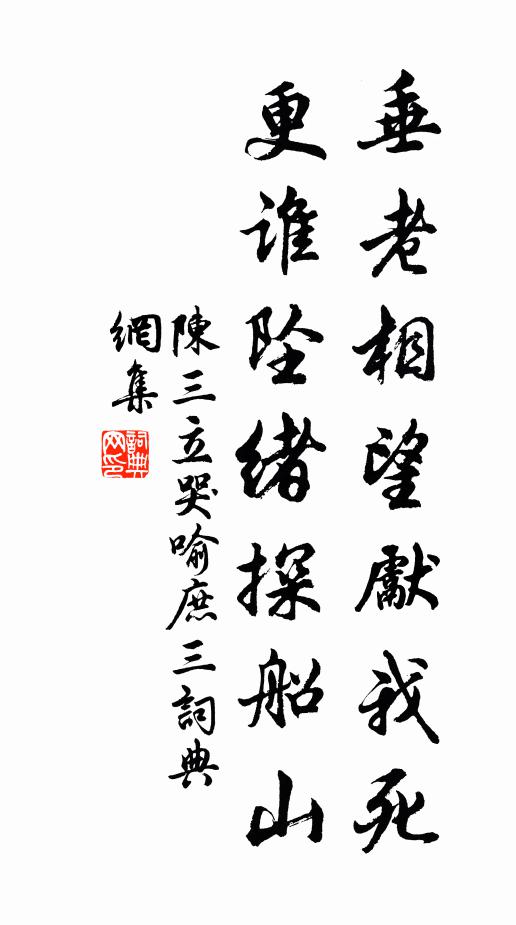 垂老相望獻我死
更誰坠緒探船山
陳三立哭喻庶三詞典
網集
詞典
网印